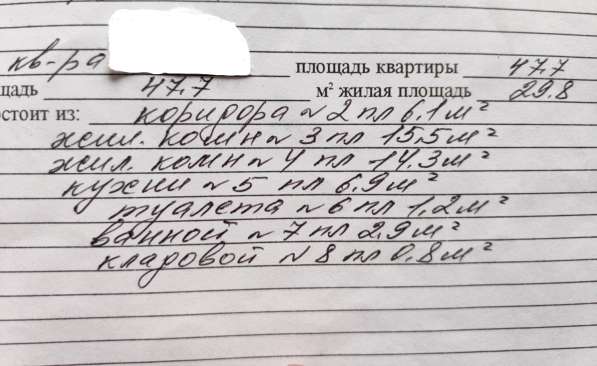 кв-ра площадь квартиры 47.7
щадь 47.7 м² жилая площадь 29.8
стоит из: коридора №2 пл 6.1м²
жил. комн №3 пл 15,5м²
жил. комн №4 пл 14.3м²
кухни №5 пл 6,9м²
туалета №6 пл 1,2м²
ванной №7 пл 2,9м²
кладовой №8 пл 0,8м²